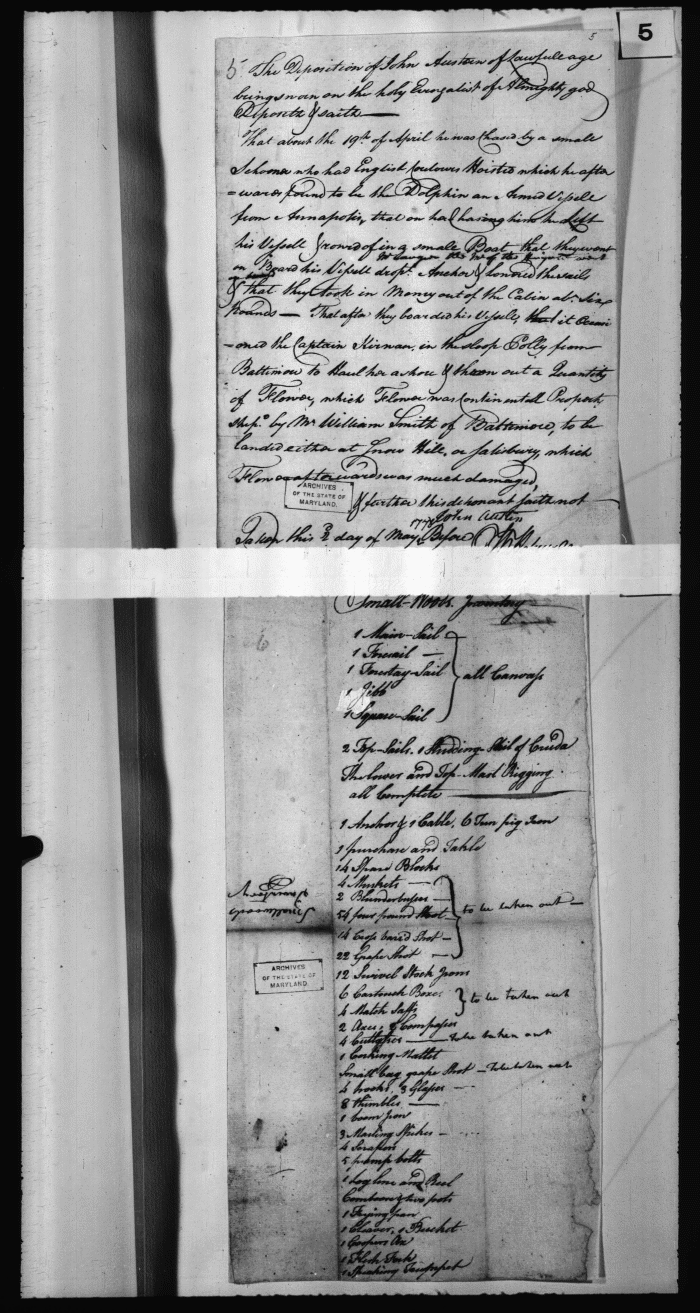 5
5
5 The Deposition of John Austen of Lawfull age
being sworn on the holy Evengalist of Almighty god
Deposeth & saith
That about the 19th of April he was Chased by a small
Schooner who had English Coulours Hoisted which he after
=wards found to be the Dolphin an Armed Vessele
from Annapolis, that on her Chasing him he Left
his Vessell & rowed of in a small Boat that they went
on Board his Vessell dropt Anchor & lowred the sails
& that they took in Money out of the Cabin abt. Six
Pounds — That after they boarded his Vessele, it Occasi
-oned the Captain Kirwan, in the sloop Polly from
Baltimore to Haul her ashore & throw out a Quantity
of Flower, which Flower was Continentall Property
ship.d by Mr William Smith of Baltimore, to be
landed either at Snow Hill, or Salisbury, which
Flower afterwards was much damaged,
& further this deponant saith not
John Austin
Taken this 2d day of May 1778 Before
ARCHIVES
OF THE STATE OF
MARYLAND.
6
Small-Woods. Inventory
1 Main-Sail
1 Foresail
1 Forestay-Sail
1 Jibb
1 Square-Sail
all Canvass
2 Top-Sails. 1 Studding-Sail of
The lower and Top-Mast Rigging
all Complete
1 Anchor & 1 Cable. 6 Tun pig Iron
1 purchase and Takle
14 Spare Blocks
4 Muskets —
2 Blunderbusses —
54 four pound Shott
14 Cross bar'd Shot —
22 Grape Shot —
to be taken out —
12 Swivel Stock Irons
6 Cartouch Boxes
4 Match Staffs
to be taken out
2 Axes, 2 Compasses
4 Cuttlasses — to be taken out
1 Corking Mallet
Small bag grape Shot — to be taken out
4 hooks, 3 Glasses
8 thimbles —
1 boom Iron
3 Marling Spikes —
4 Scrapers
5 pump bolts
1 Log line and Reel
Comboose & two pots
1 Frying pan
1 Cleaver, 1 Hatchet
1 Coopers Ax
1 Flesh Fork
1 Speaking Trumpet
Smallwoods
Inventory
ARCHIVES
OF THE STATE OF
MARYLAND.